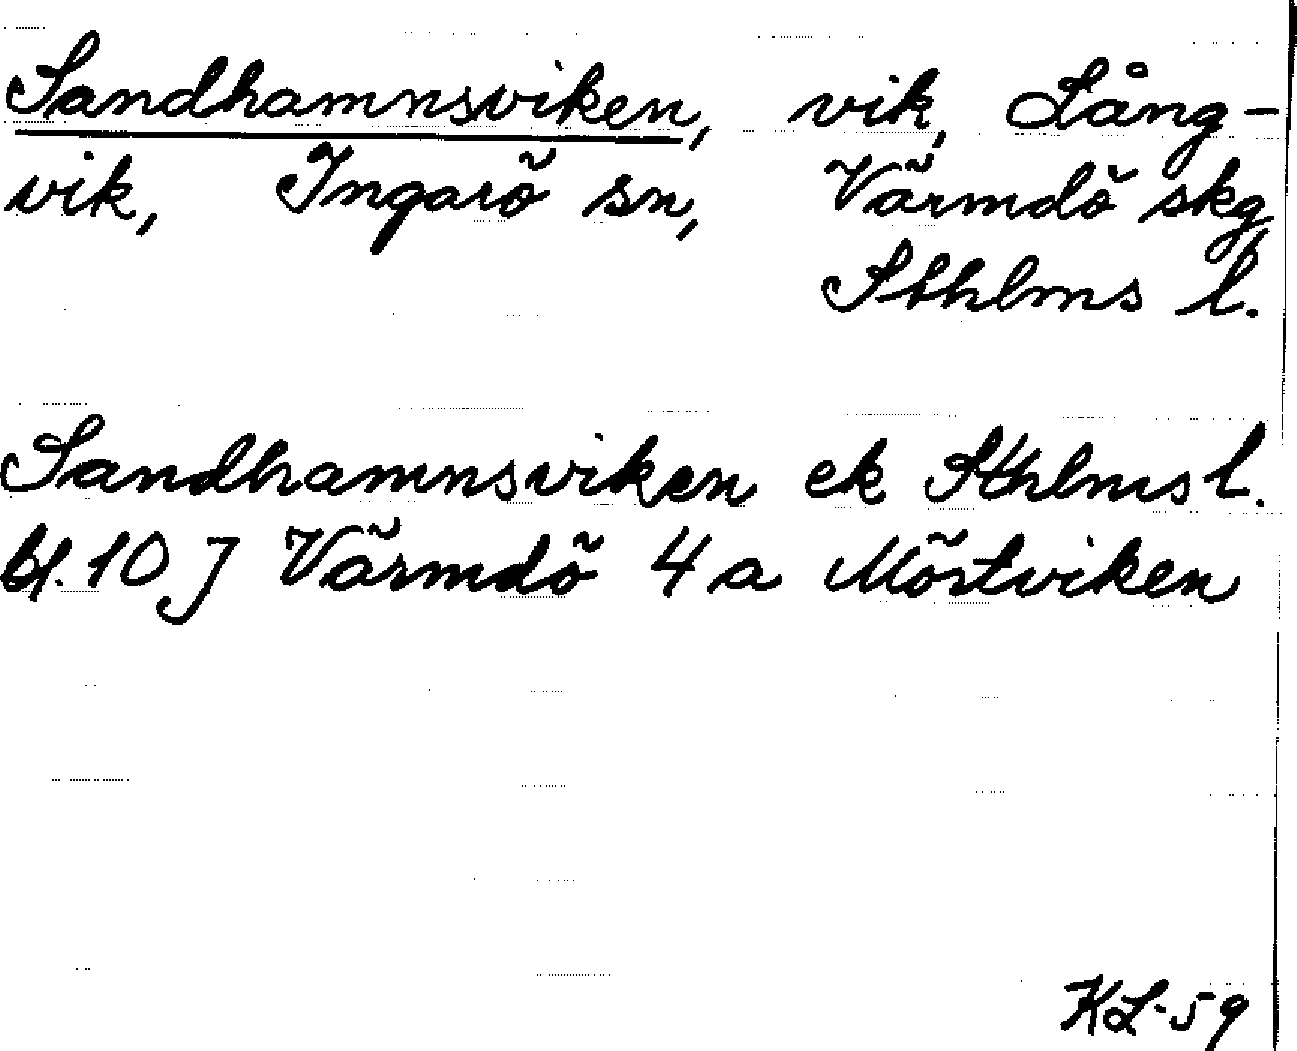 Sandhamnsviken, vik, Lång-
vik, Ingarö sn, Värmdö skg,
Sthlms l.
Sandhamnsviken ek Sthlms l.
bl. 10 J Värmdö 4 a Mörtviken
KL-59